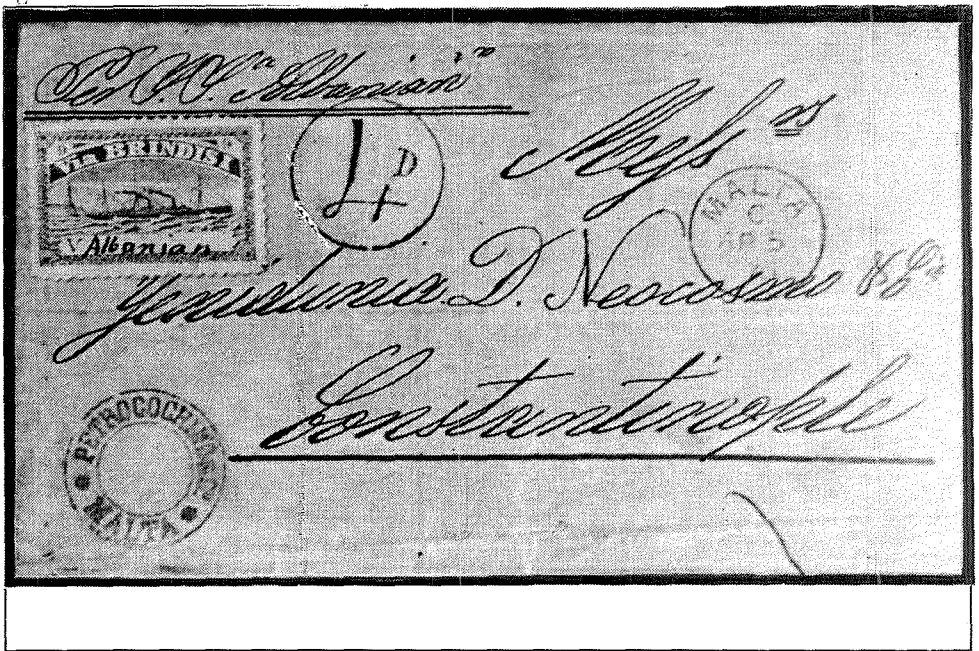 Per S.S. "Albanian"
Via BRINDISI
V Albanian
4D
Mess rs
MALTA
C
AP 5
D. Neocosmo & Co
Constantinople
PETROCOCHINO
MALTA